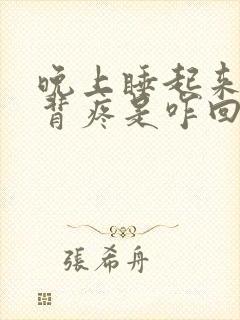 晚上睡起来
背疼是咋回
張希舟